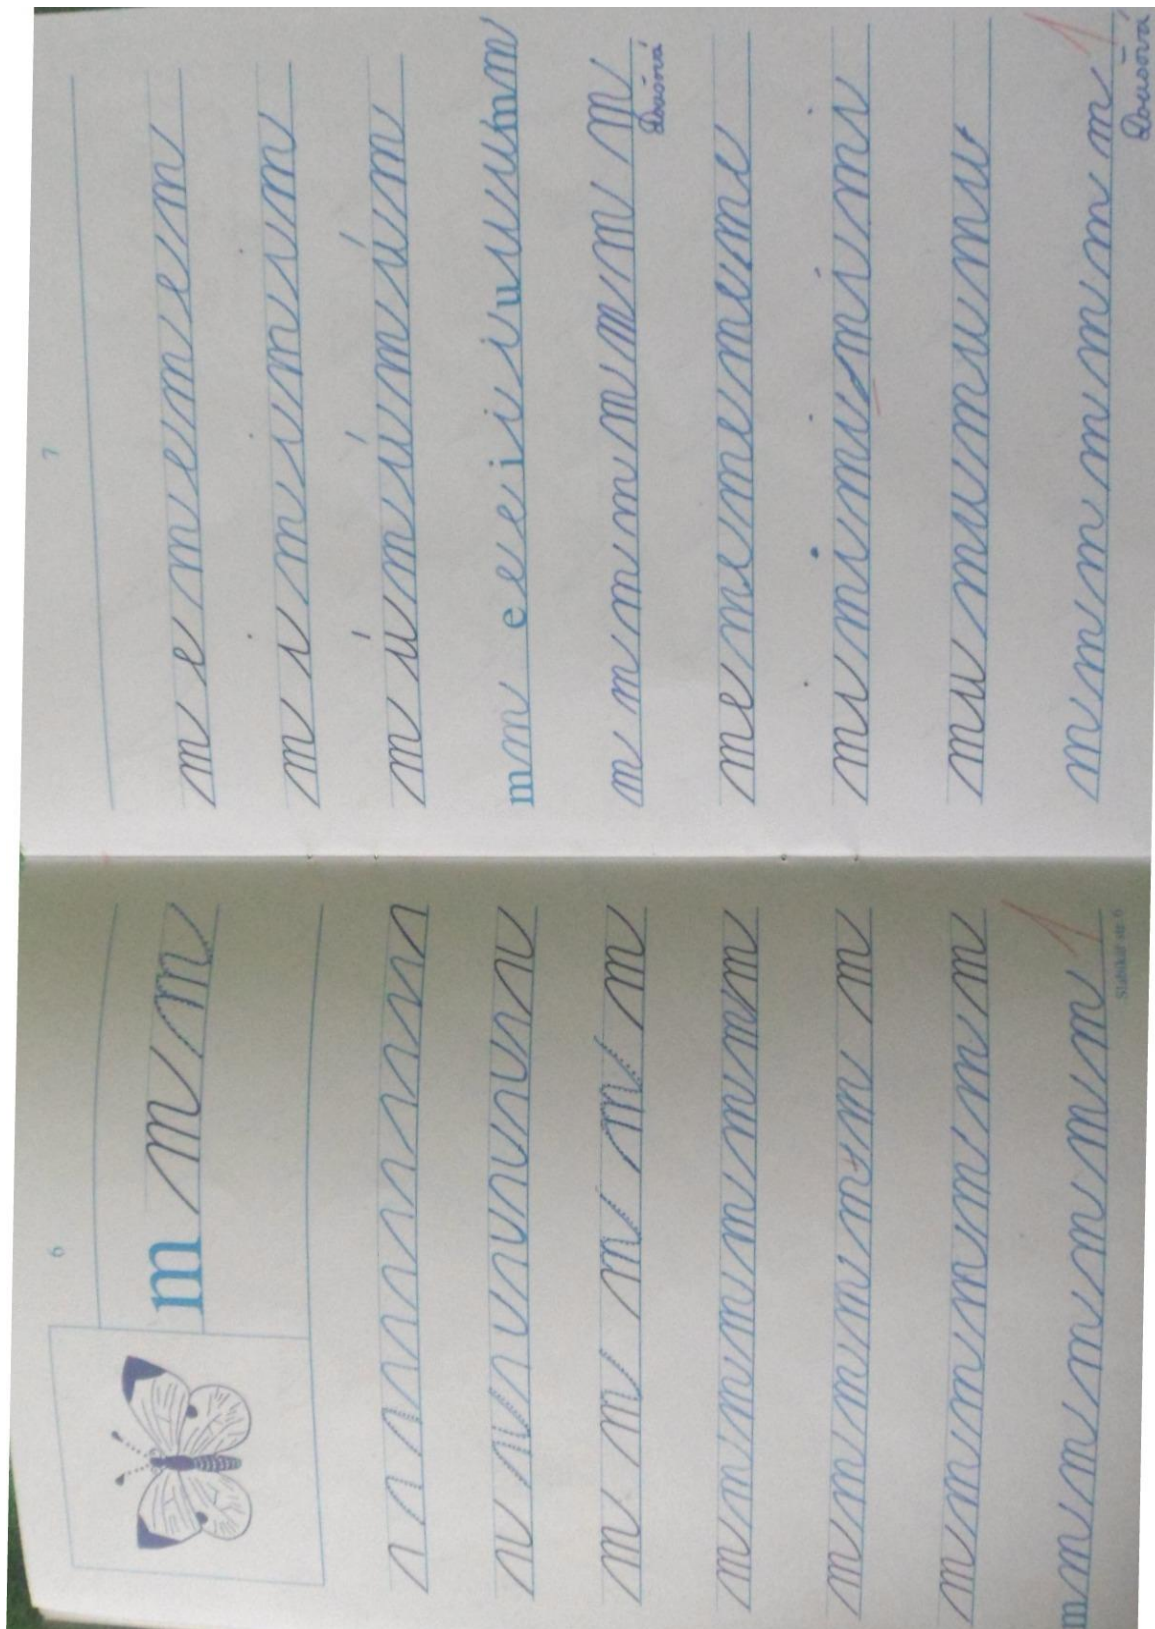 6
m m m
m m m m m
m m m m m m m m
m m m m m m m
m m m m m m m
m m m m m m m
1
Slabikář str. 6
7
m e m e m e m
m i m i m i m
m ú m ú m ú m
m m e e e i i i u u u m m
m m m m m m m m
Doušová
me me me me me
mi mi mi mi mi
mu mu mu mu
m m m m m m m
1
Doušová